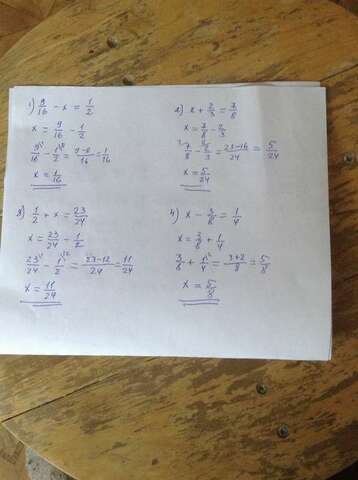 1) 9/16 - x = 1/2
x = 9/16 - 1/2
9/16 - 1/2 = 9-8/16 = 1/16
x = 1/16
2) x + 2/3 = 7/8
x = 7/8 - 2/3
7/8 - 2/3 = 21-16/24 = 5/24
x = 5/24
3) 1/2 + x = 23/24
x = 23/24 - 1/2
23/24 - 1/2 = 23-12/24 = 11/24
x = 11/24
4) x - 3/8 = 1/4
x = 3/8 + 1/4
3/8 + 1/4 = 3+2/8 = 5/8
x = 5/8